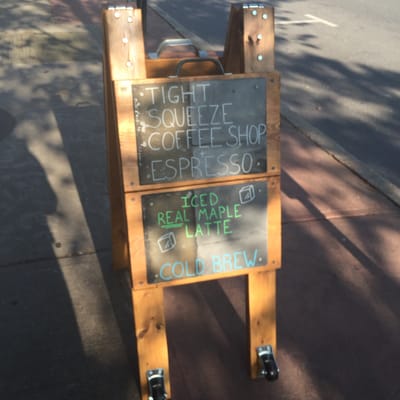 TIGHT
SQUEEZE
COFFEE SHOP
ESPRESSO
ICED
REAL MAPLE
LATTE
COLD BREW